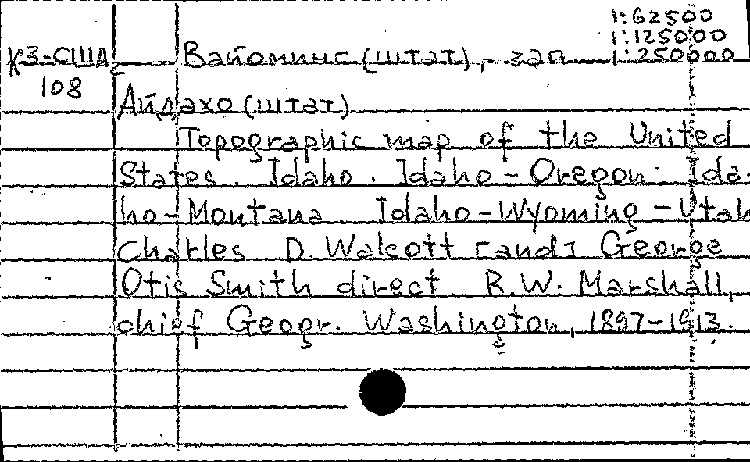 1:62500
1:125000
КЗ-США Вайоминг (штат), - зап 1:250000
108
Айдахо (штат)
Topographic map of the United
States. Idaho. Idaho-Oregon. Ida-
ho-Montana. Idaho-Wyoming-Utah
Charles D. Walcott [and] George
Otis Smith direct. R.W. Marshall,
chief Geogr. Washington, 1897-1913.